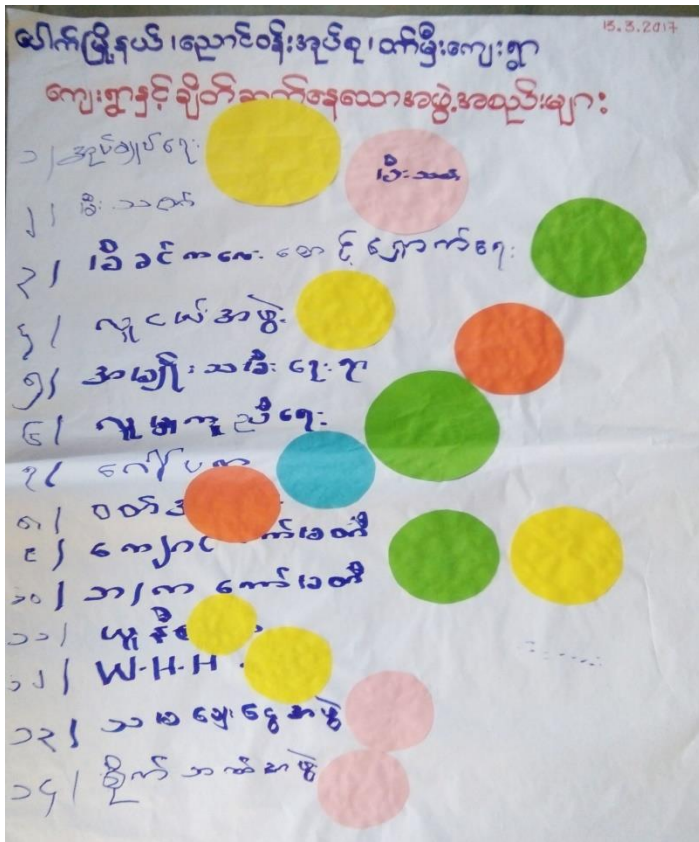 15.3.2017
ပေါက်မြို့နယ်၊ညောင်ဝန်းအုပ်စု၊တက်မှီးကျေးရွာ
ကျေးရွာနှင့်ချိတ်ဆက်နေသောအဖွဲ့အစည်းများ
၁၊ အုပ်ချုပ်ရေး
မီးသတ်
၂၊ မီးသတ်
၃၊ မိခင်ကလေးစောင့်ရှောက်ရေး
၄၊ လူငယ်အဖွဲ့
၅၊ အမျိုးသမီးရေးရာ
၆၊ လူမှုကူညီရေး
၇၊ ဂေါပက
၈၊ ဝတ်
၉၊ ကျောင်းကော်မတီ
၁၀၊ ဘ/က ကော်မတီ
၁၁၊ ယူနီ
၁၂၊ W-H-H
၁၃၊ သမချေးငွေအဖွဲ့
၁၄၊ စိုက်ဘဏ်အဖွဲ့